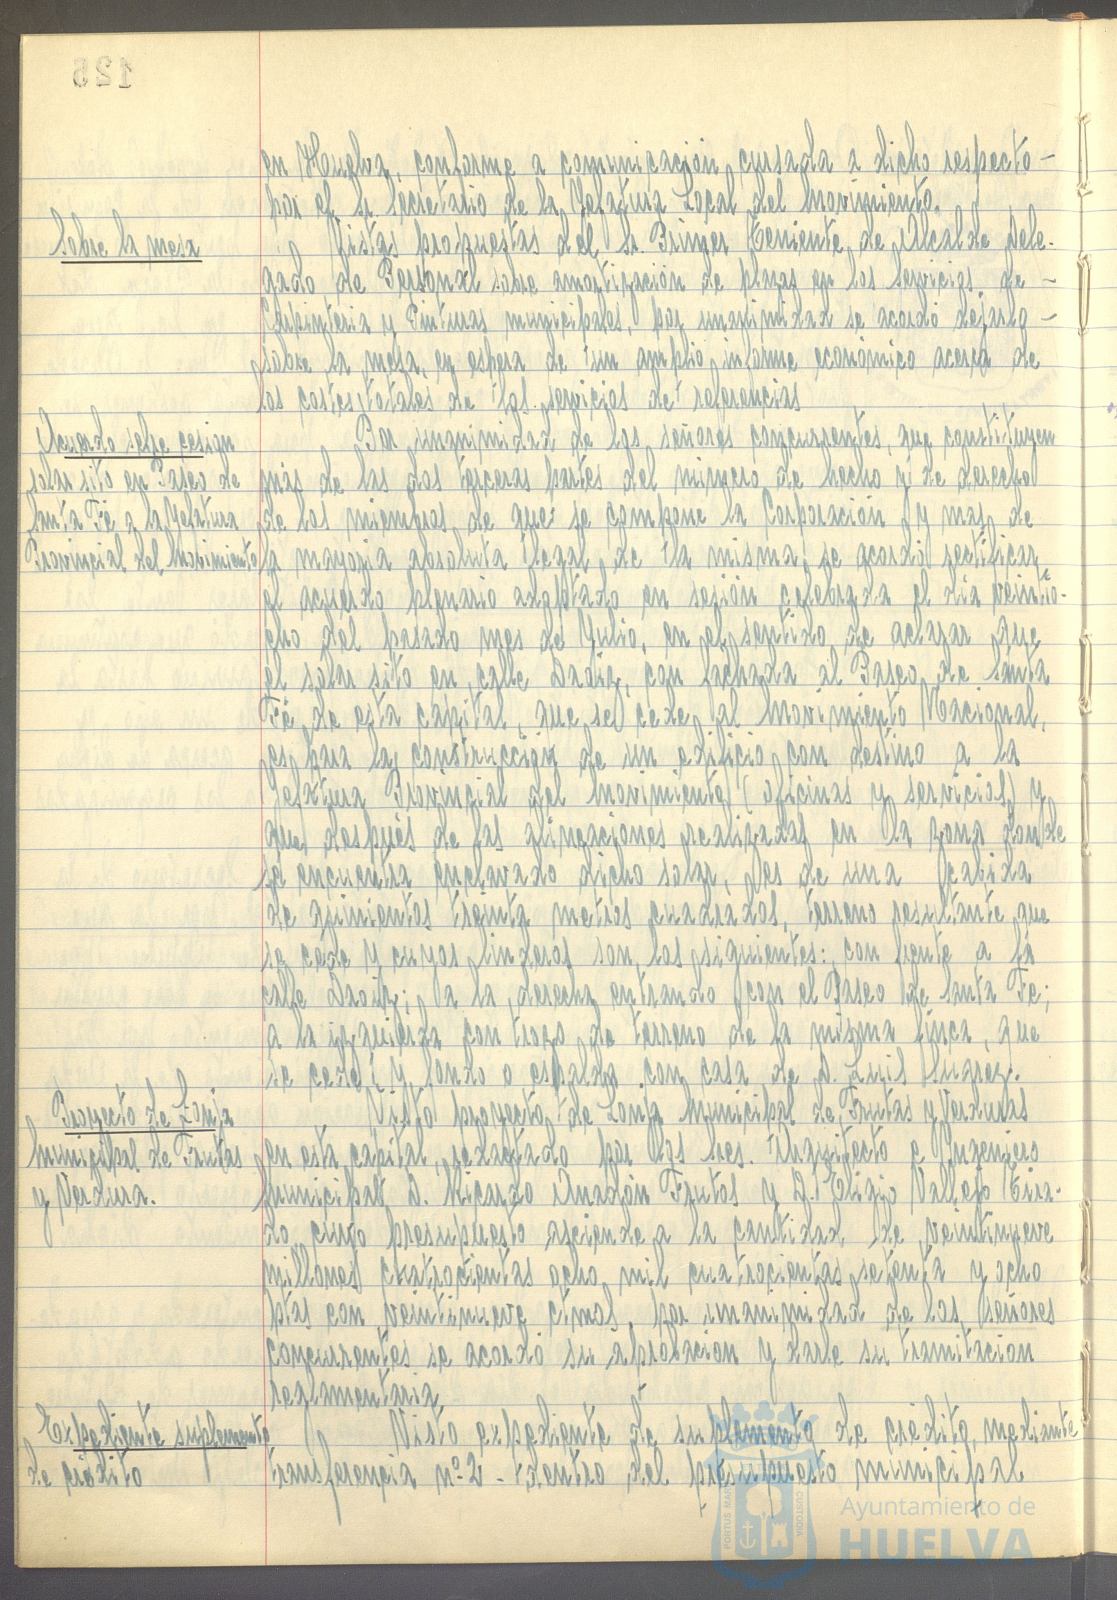 125
en Huelva, conforme a comunicación cursada a dicho respecto -
por el Sr. Secretario de la Jefatura Local del Movimiento.
Sobre la mesa
Vistas propuestas del Sr. Primer Teniente de Alcalde Dele-
gado de Personal sobre amortización de plazas en los servicios de -
Carpintería y Pinturas municipales, por unanimidad se acordó dejarlo -
sobre la mesa, en espera de un amplio informe económico acerca de
los costes totales de los servicios de referencias
Acuerdo sobre cesion
solar sito en Paseo de
Santa Fé a la Jefatura
Provincial del Movimiento
Por unanimidad de los señores concurrentes, que constituyen
más de las dos terceras partes del número de hecho y de derecho
de los miembros de que se compone la Corporación y mas de
la mayoría absoluta legal de la misma, se acordó rectificar
el acuerdo plenario adoptado en sesión celebrada el día veintio-
cho del pasado mes de Julio, en el sentido de aclarar que
el solar sito en calle Daoiz, con fachada al Paseo de Santa
Fé, de esta capital, que se cede al Movimiento Nacional,
es para la construcción de un edificio con destino a la
Jefatura Provincial del Movimiento (oficinas y servicios) y
que después de las alineaciones realizadas en la zona donde
se encuentra enclavado dicho solar, es de una cabida
de quinientos treinta metros cuadrados, terreno resultante que
se cede y cuyos linderos son los siguientes: con frente a la
calle Daoiz; a la derecha entrando con el Paseo de Santa Fé;
a la izquierda con trozo de terreno de la misma finca, que
se cede y fondo o espalda con casa de D. Luis Suarez.
Proyecto de Lonja
Municipal de Frutas
y Verdura.
Visto proyecto de Lonja Municipal de Frutas y Verduras
en esta capital, redactado por los Sres. Arquitecto e Ingeniero
municipal D. Ricardo Anadón Frutos y D. Eligio Vallejo Tira-
do, cuyo presupuesto asciende a la cantidad de veintinueve
millones cuatrocientas ocho mil cuatrocientas setenta y ocho
ptas con veintinueve ctmos, por unanimidad de los señores
concurrentes se acordó su aprobacion y darle su tramitacion
reglamentaria.
Expediente suplemento
de crédito
Visto expediente de suplemento de crédito, mediante
transferencia nº 2 - dentro del presupuesto municipal
PORTUS MARIS
CUSTODIA
Ayuntamiento de
HUELVA